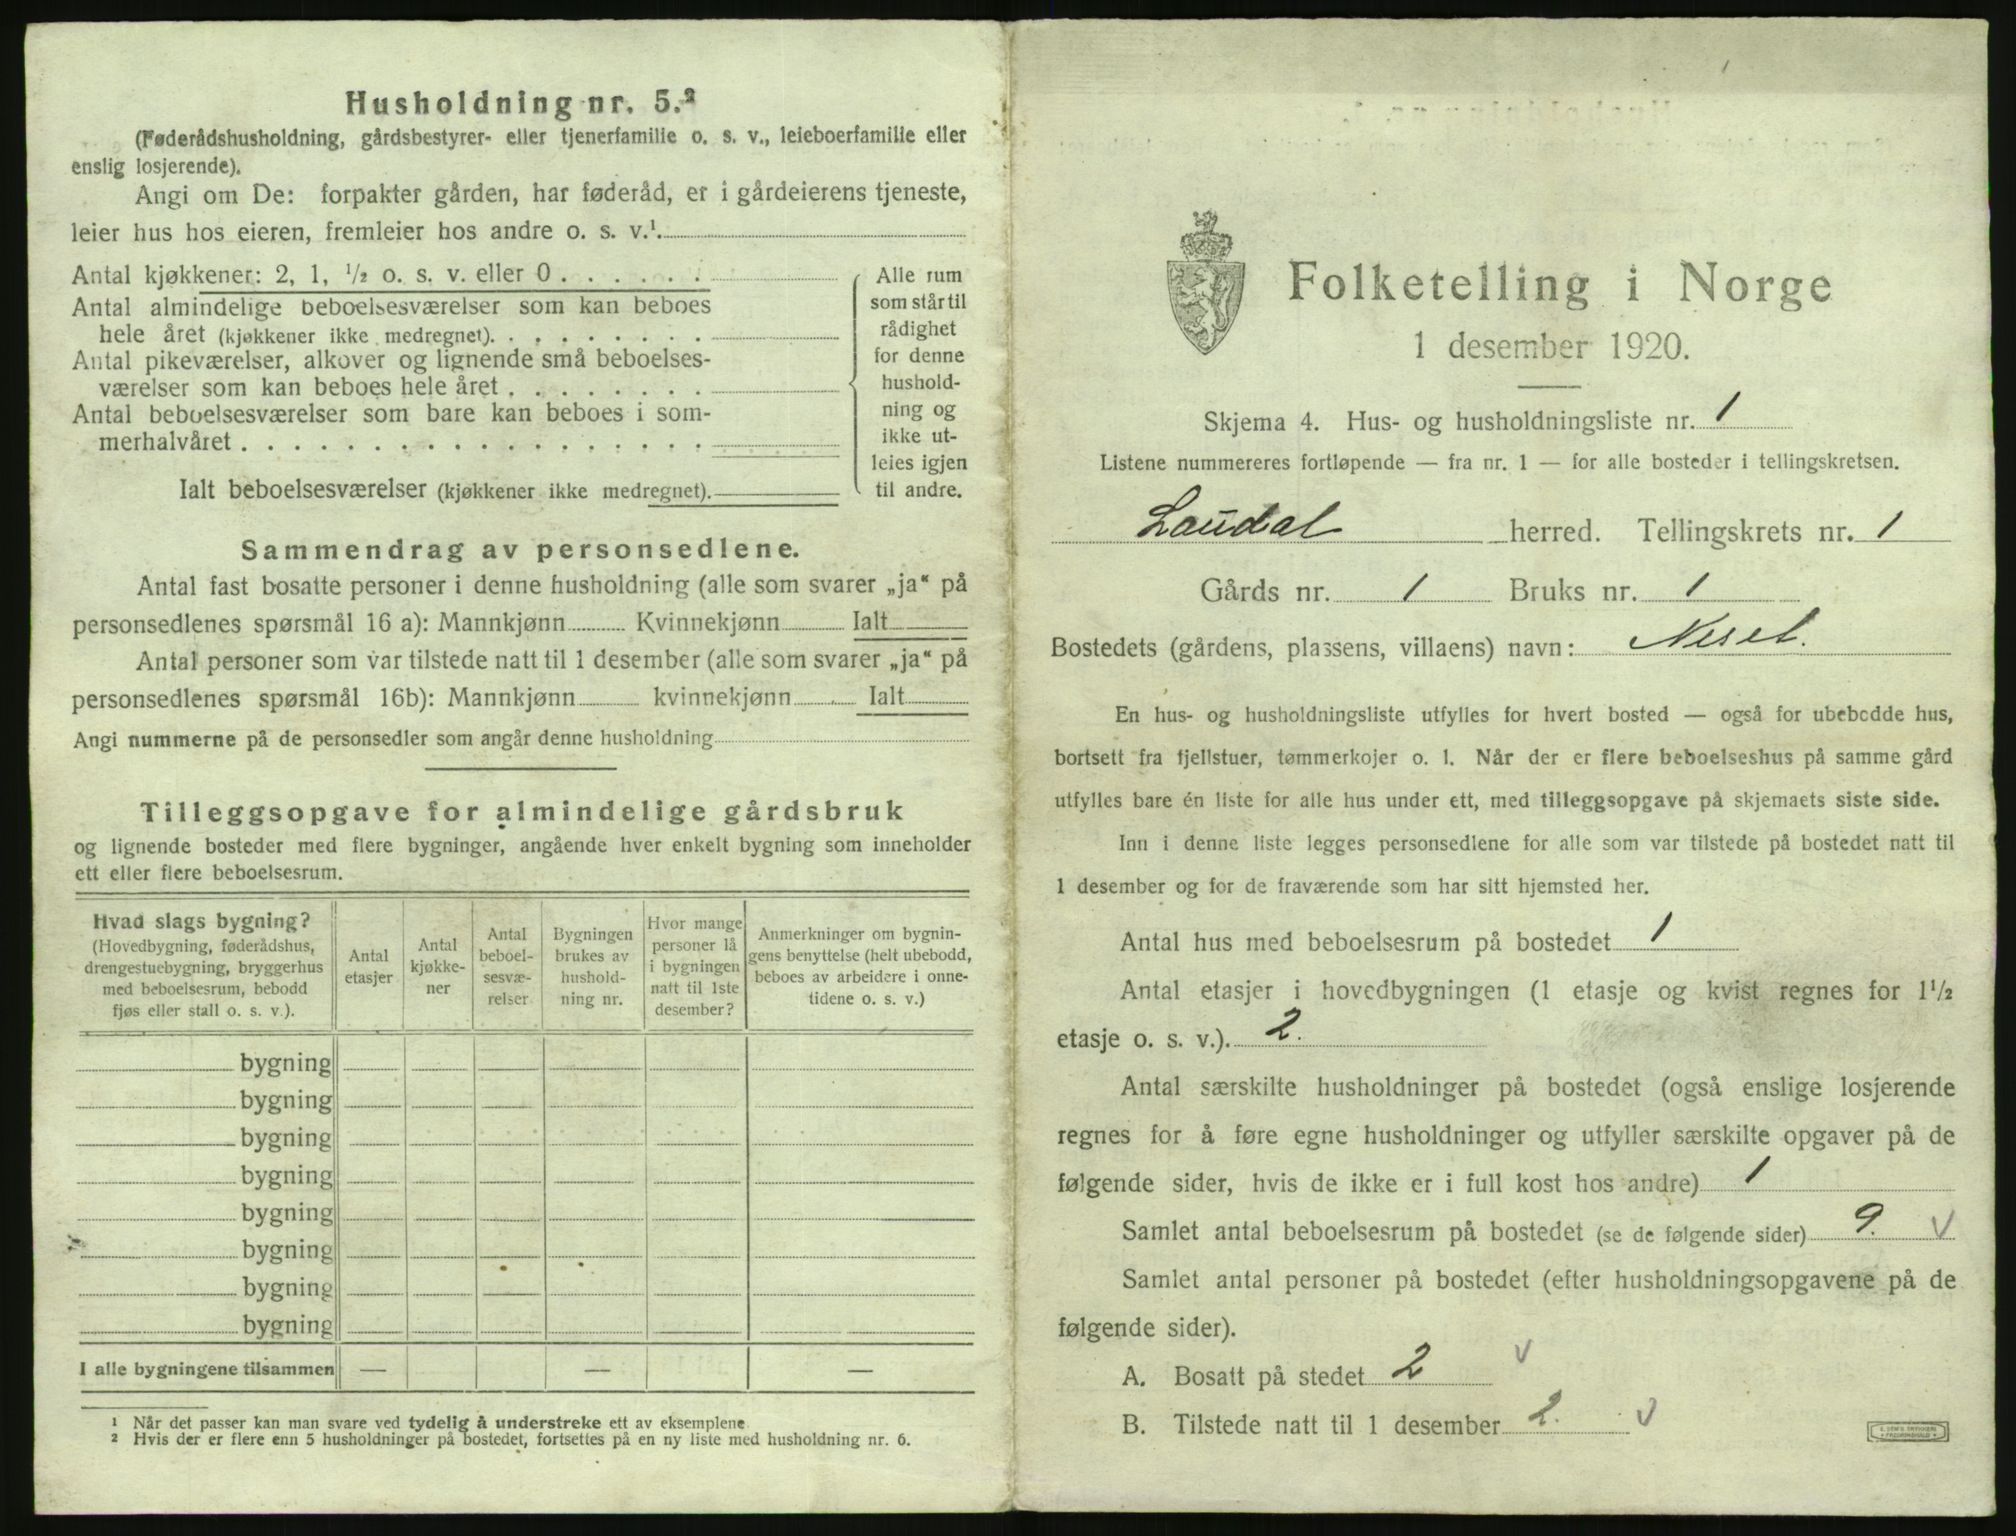 Husholdning nr. 5.²
(Føderådshusholdning, gårdsbestyrer- eller tjenerfamilie o. s. v., leieboerfamilie eller
enslig losjerende).
Angi om De: forpakter gården, har føderåd, er i gårdeierens tjeneste,
leier hus hos eieren, fremleier hos andre o. s. v.¹.
Antal kjøkkener: 2, 1, ½ o. s. v. eller 0 . . . . . .
Antal almindelige beboelsesværelser som kan beboes
hele året (kjøkkener ikke medregnet). . . . . . . . .
Antal pikeværelser, alkover og lignende små beboelses-
værelser som kan beboes hele året . . . . . . . .
Antal beboelsesværelser som bare kan beboes i som-
merhalvåret . . . . . . . . . . . . . . . . . .
Ialt beboelsesværelser (kjøkkener ikke medregnet).
Alle rum
som står til
rådighet
for denne
hushold-
ning og
ikke ut-
leies igjen
til andre.
Sammendrag av personsedlene.
Antal fast bosatte personer i denne husholdning (alle som svarer „ja“ på
personsedlenes spørsmål 16 a): Mannkjønn Kvinnekjønn Ialt
Antal personer som var tilstede natt til 1 desember (alle som svarer „ja“ på
personsedlenes spørsmål 16b): Mannkjønn kvinnekjønn Ialt
Angi nummerne på de personsedler som angår denne husholdning
Tilleggsopgave for almindelige gårdsbruk
og lignende bosteder med flere bygninger, angående hver enkelt bygning som inneholder
ett eller flere beboelsesrum.
Hvad slags bygning?
(Hovedbygning, føderådshus,
drengestuebygning, bryggerhus
med beboelsesrum, bebodd
fjøs eller stall o. s. v.).
Antal
etasjer
Antal
kjøkke-
ner
Antal
beboel-
sesvæ-
relser
Bygningen
brukes av
hushold-
ning nr.
Hvor mange
personer lå
i bygningen
natt til 1ste
desember?
Anmerkninger om bygnin-
gens benyttelse (helt ubebodd,
beboes av arbeidere i onne-
tidene o. s. v.)
bygning
bygning
bygning
bygning
bygning
bygning
bygning
bygning
I alle bygningene tilsammen — — —
¹ Når det passer kan man svare ved tydelig å understreke ett av eksemplene.
² Hvis der er flere enn 5 husholdninger på bostedet, fortsettes på en ny liste med husholdning nr. 6.
Folketelling i Norge
1 desember 1920.
Skjema 4. Hus- og husholdningsliste nr. 1
Listene nummereres fortløpende — fra nr. 1 — for alle bosteder i tellingskretsen.
Laudal herred. Tellingskrets nr. 1
Gårds nr. 1 Bruks nr. 1
Bostedets (gårdens, plassens, villaens) navn: Neset.
En hus- og husholdningsliste utfylles for hvert bosted — også for ubebodde hus,
bortsett fra fjellstuer, tømmerkojer o. l. Når der er flere beboelseshus på samme gård
utfylles bare én liste for alle hus under ett, med tilleggsopgave på skjemaets siste side.
Inn i denne liste legges personsedlene for alle som var tilstede på bostedet natt til
1 desember og for de fraværende som har sitt hjemsted her.
Antal hus med beboelsesrum på bostedet 1
Antal etasjer i hovedbygningen (1 etasje og kvist regnes for 1½
etasje o. s. v.). 2.
Antal særskilte husholdninger på bostedet (også enslige losjerende
regnes for å føre egne husholdninger og utfyller særskilte opgaver på de
følgende sider, hvis de ikke er i full kost hos andre) 1
Samlet antal beboelsesrum på bostedet (se de følgende sider) 9. v
Samlet antal personer på bostedet (efter husholdningsopgavene på de
følgende sider).
A. Bosatt på stedet 2 v
B. Tilstede natt til 1 desember 2. v